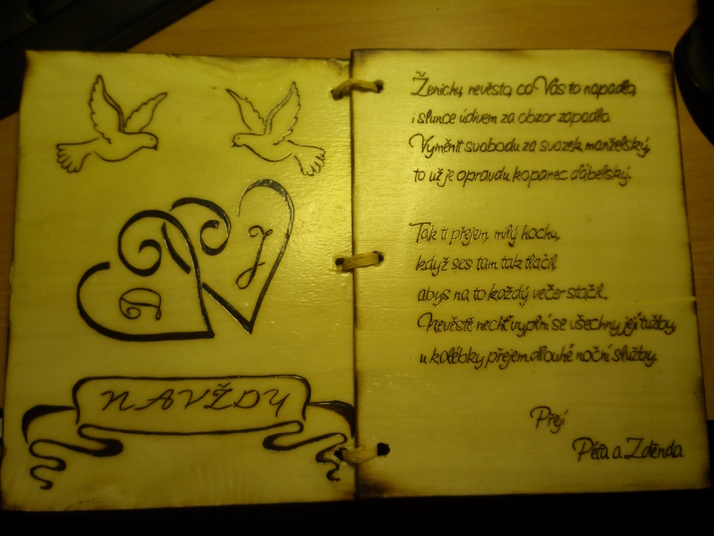 D
J
NAVŽDY
Ženichu, nevěsto, co Vás to napadlo,
i slunce údivem za obzor zapadlo.
Vyměnit svobodu za svazek manželský,
to už je opravdu kopanec ďábelský.
Tak ti přejem, milý hochu,
když ses tam tak tlačil,
abys na to každý večer stačil.
Nevěstě nechť vyplní se všechny její tužby,
u kolébky přejem dlouhé noční služby.
Přejí
Péťa a Zdenda